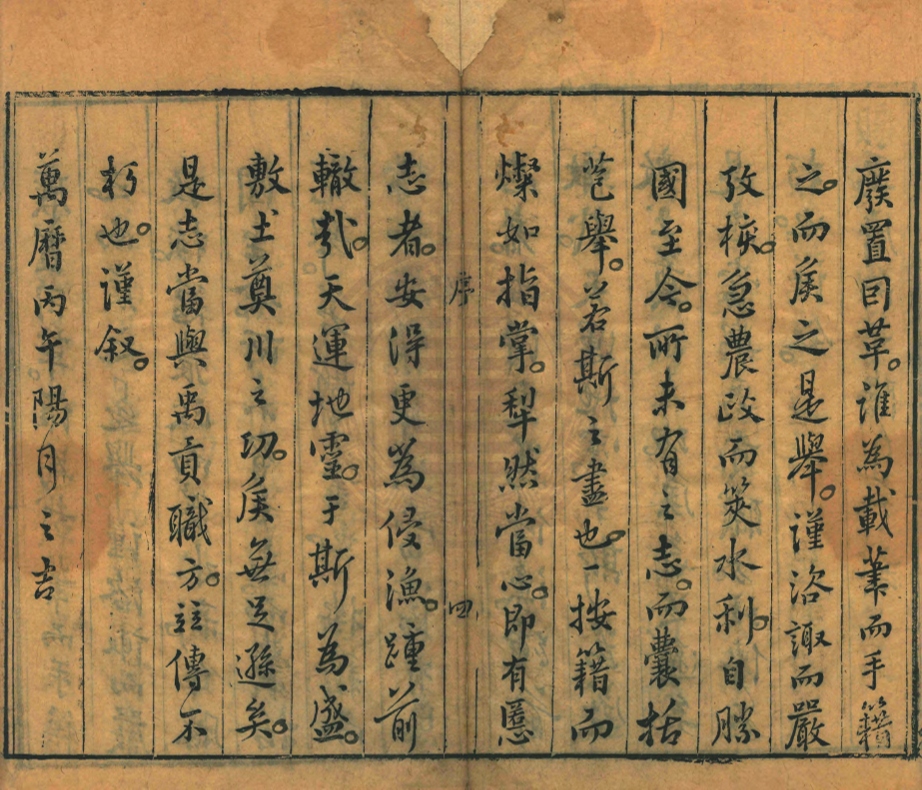 廢置因革。誰為載筆而手籍
之。而矦之是舉。謹洛諏而嚴
攷核。急農政而筴水利。自勝
國至今。所未有之志。而囊括
苞舉。若斯之盡也。一按籍而
燦如指掌。犁然當心。即有慝
序
四
志者。安淂更為侵漁。踵前
轍㢤。天運地靈。于斯為盛。
敷土奠川之功。矦無足遜矣。
是志當與禹貢職方。竝傳不
朽也。謹叙。
萬曆丙午陽月之吉